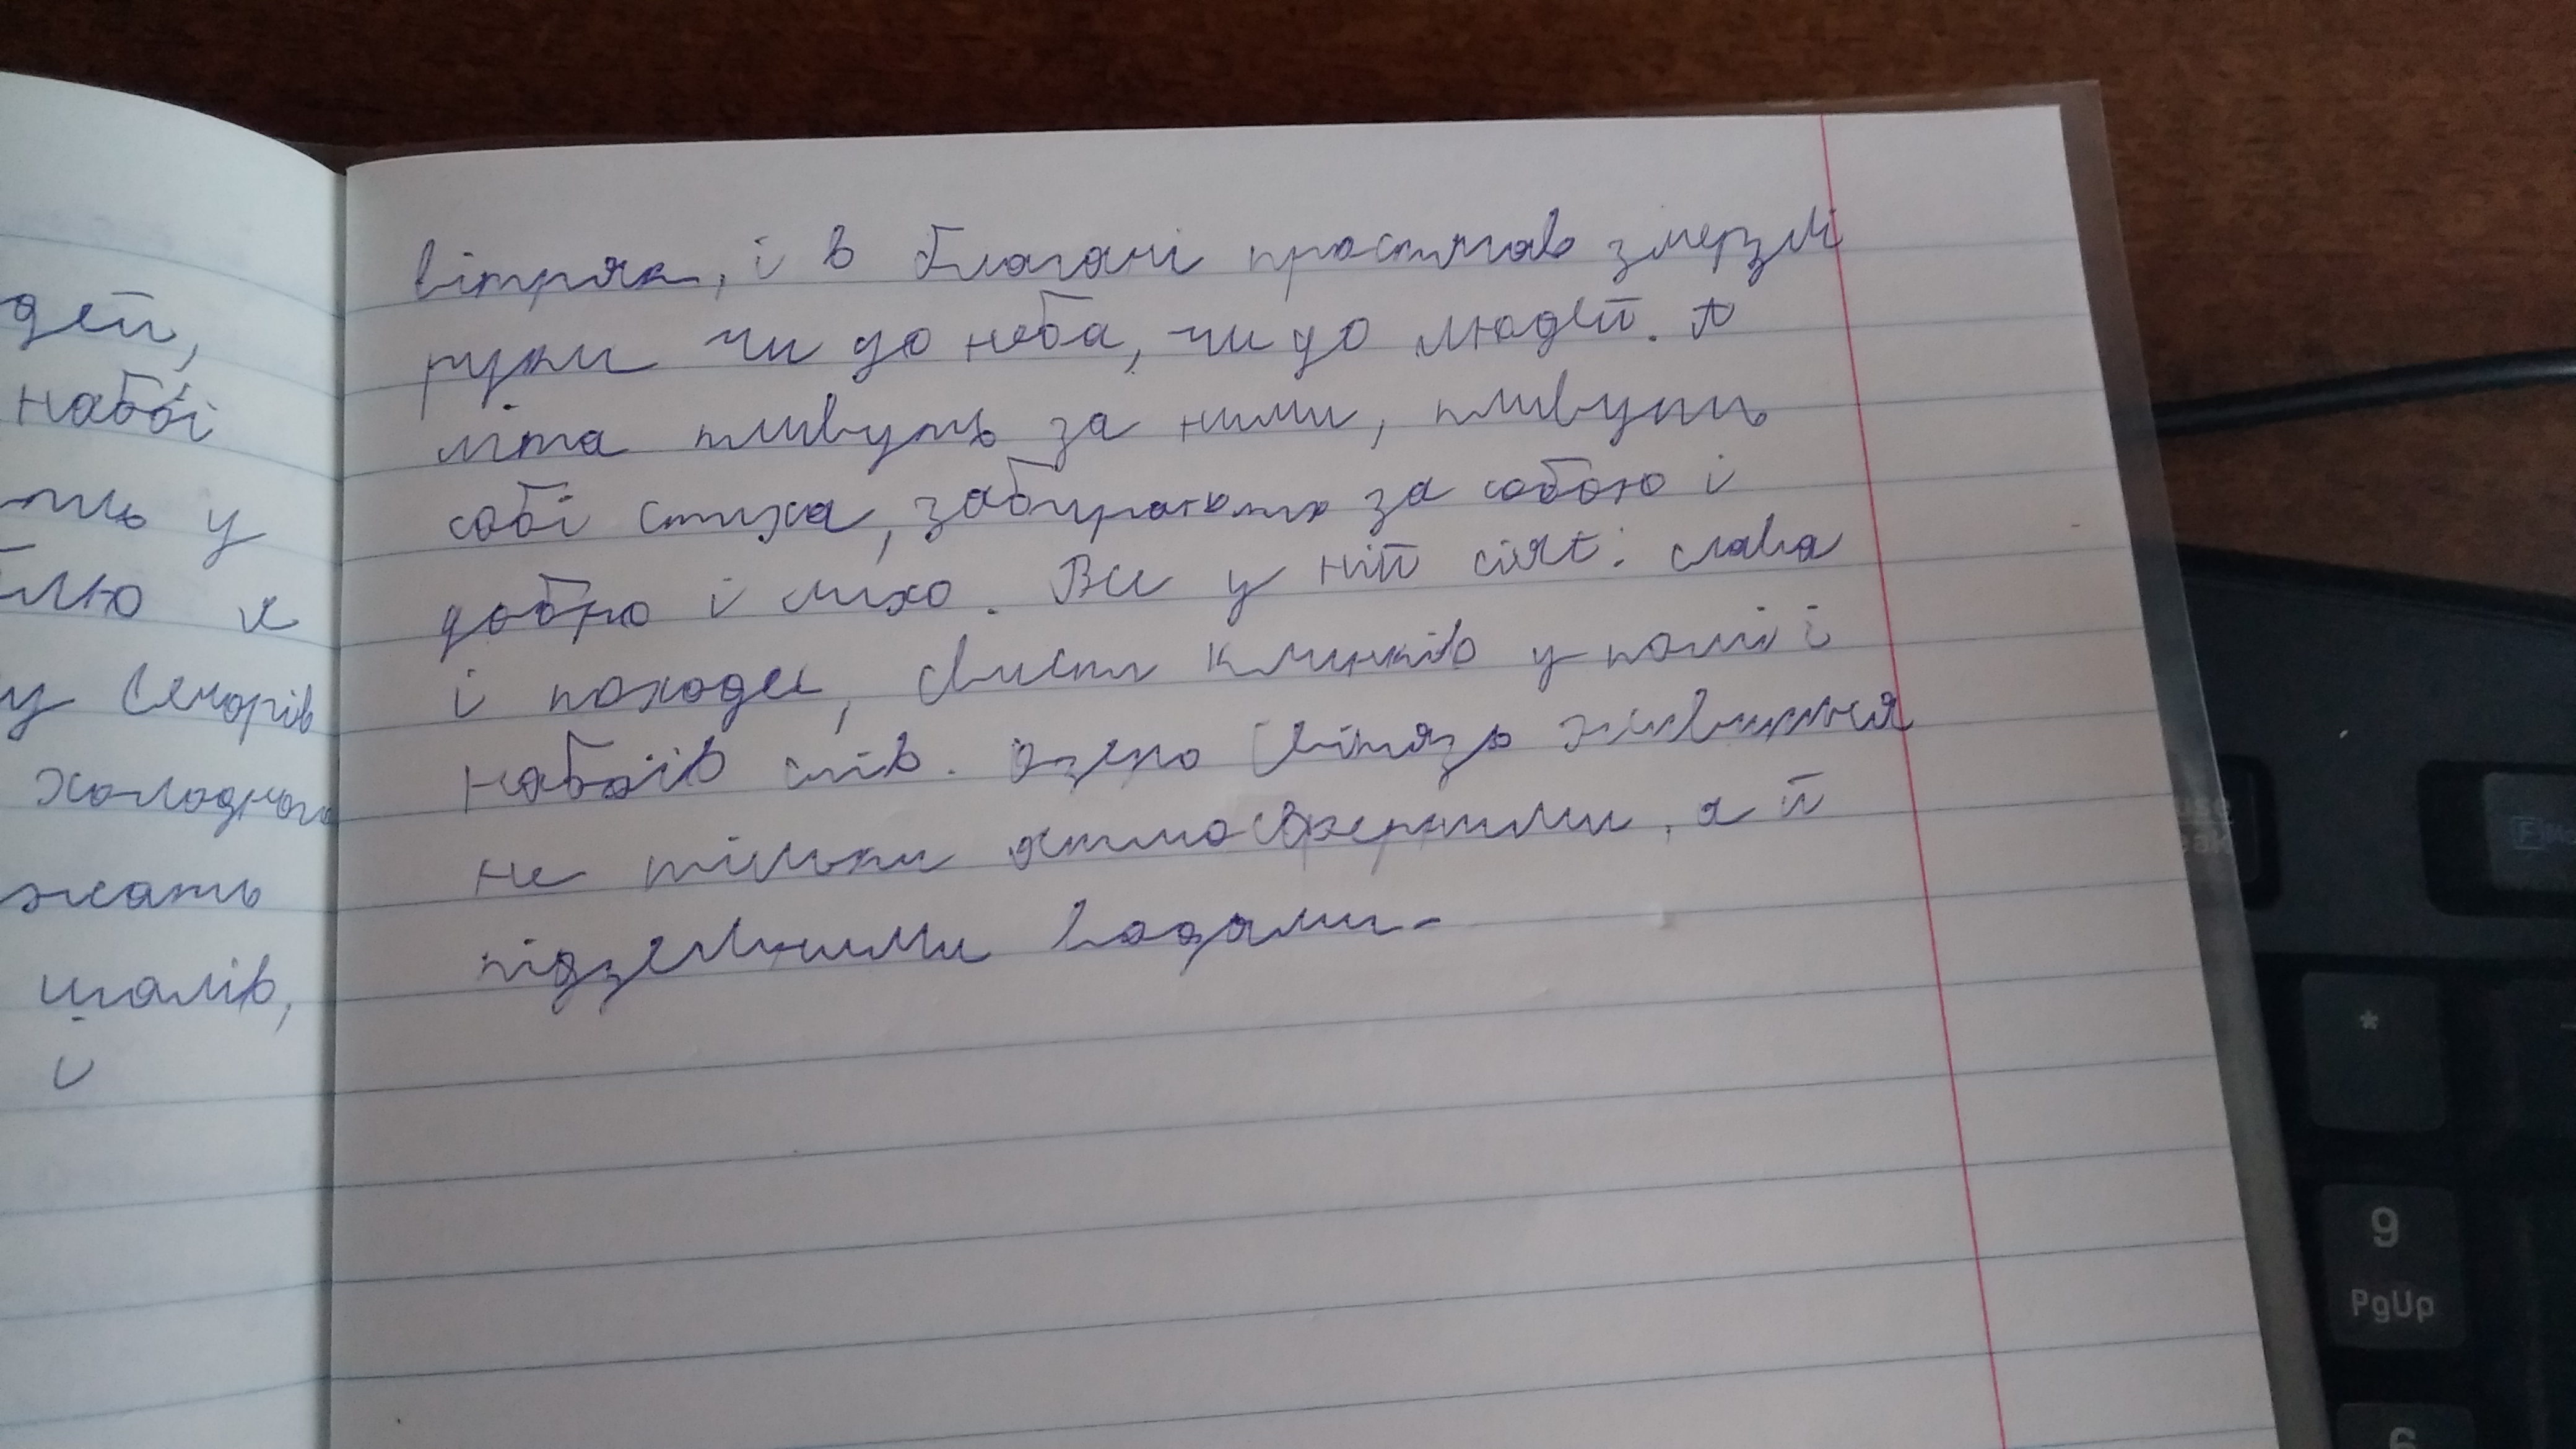 дей,
набої
у
я
у Семорів
холодного
жать
шалів,
і
вітряк, і в благані простягав змерзлі
руки чи до неба, чи до людей. А
літа пливуть за ними, пливуть
собі стиха, забирають за собою і
добро і лихо. Все у ній сіяє: слава
і походеє, свист клинків у полі і
набоїв спів. Озеро Світязь живиться
не тільки атмосферними, а й
підземними водами.
* 
9
PgUp
6